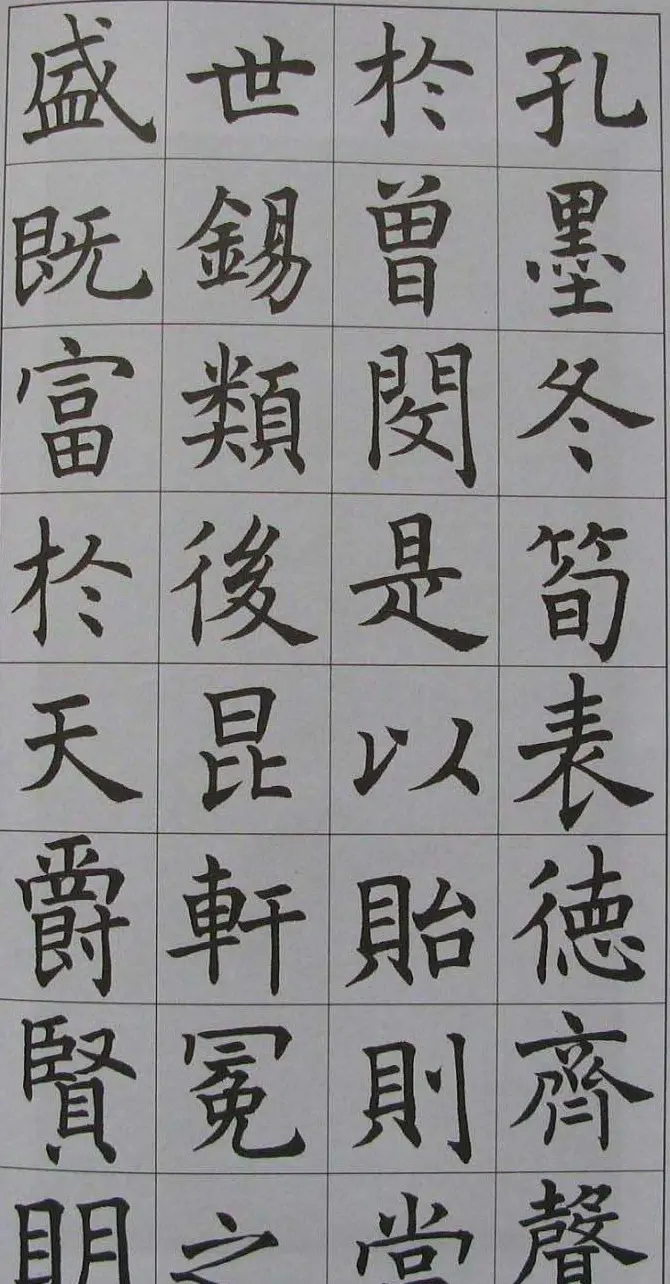 孔墨冬筍表徳齊聲
於曽閔是以貽則當
世錫類後昆軒冕之
盛既富於天爵賢眀